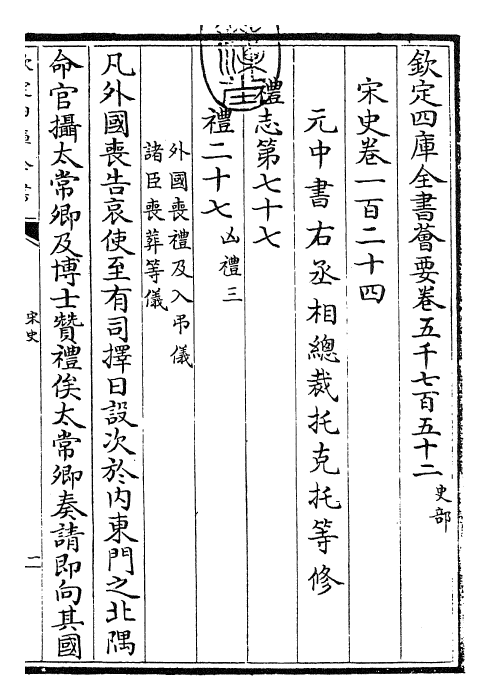 欽定四庫全書薈要卷五千七百五十二 史部
宋史卷一百二十四
元中書右丞相總裁托克托等修
禮志第七十七
禮二十七 凶禮三
外國喪禮及入弔儀
諸臣喪葬等儀
凡外國喪告哀使至有司擇日設次於内東門之北隅
命官攝太常卿及博士贊禮俟太常卿奏請即向其國
宋史
二